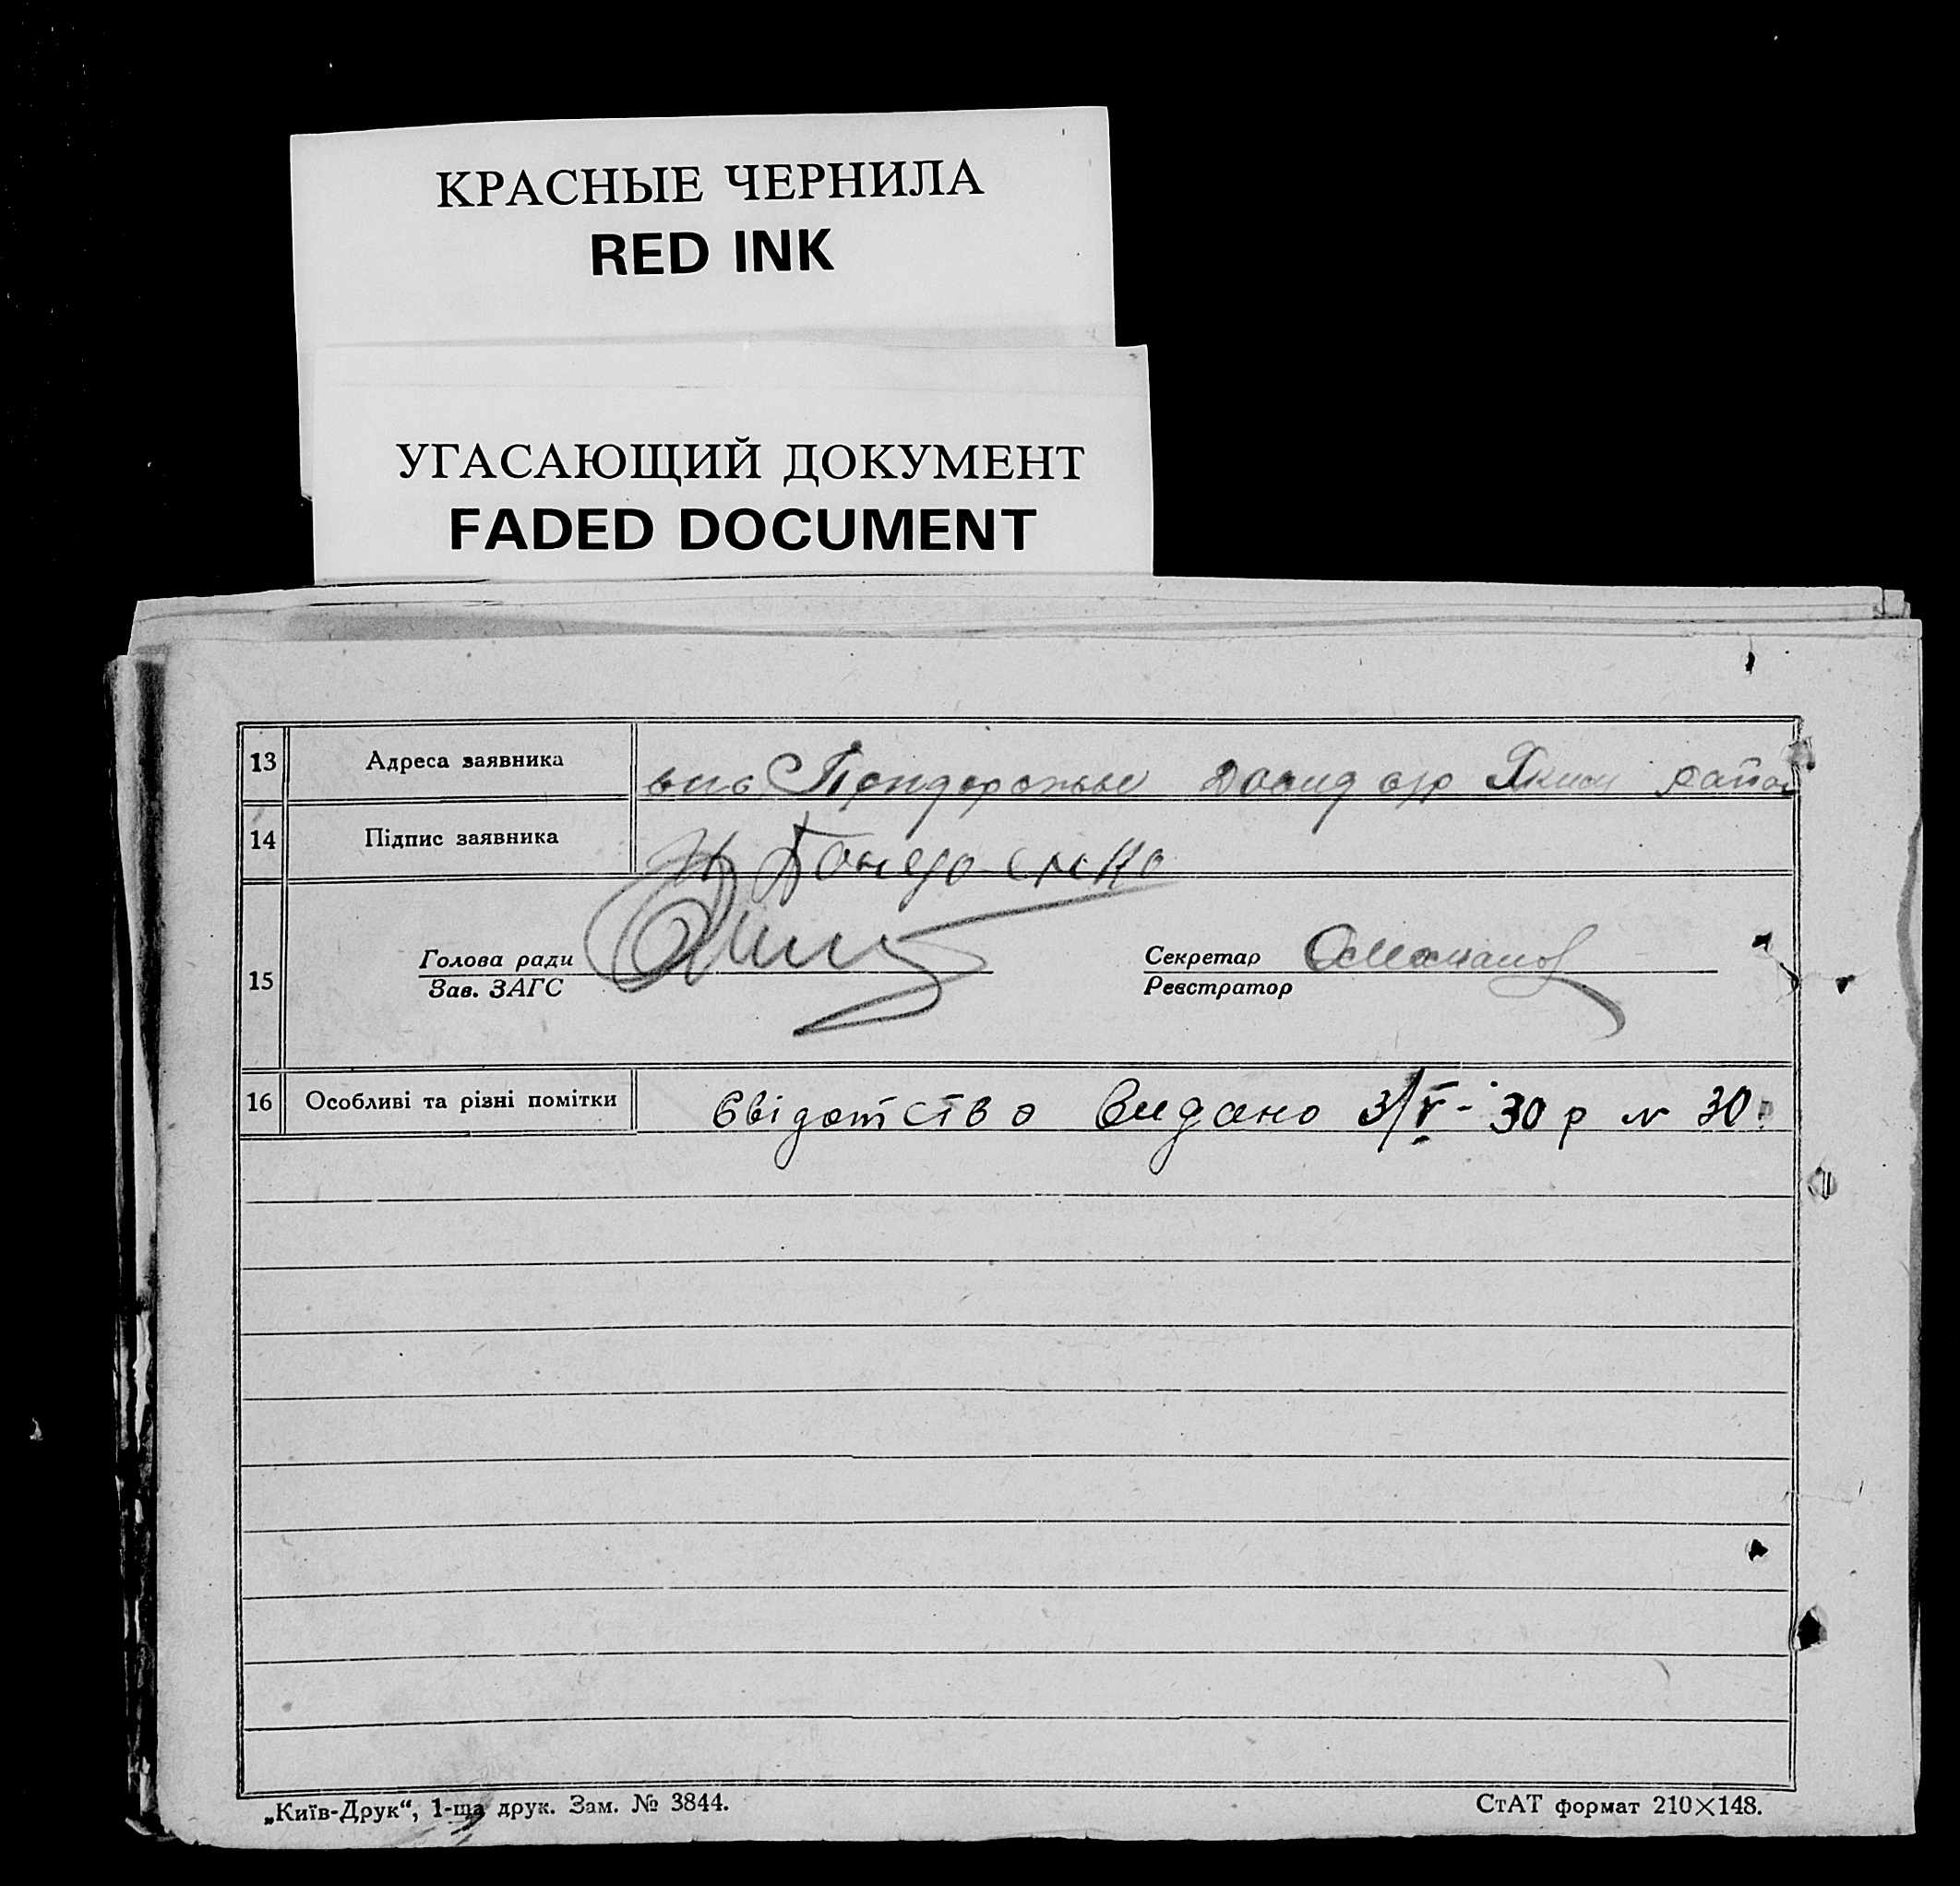 КРАСНЫЕ ЧЕРНИЛА
RED INK
УГАСАЮЩИЙ ДОКУМЕНТ
FADED DOCUMENT
13 Адреса заявника
14 Підпис заявника
15 Голова ради Секретар
Зав. ЗАГС Реєстратор
16 Особливі та різні помітки Свідотство видано 3/V-30 р № 30
„Київ-Друк“, 1-ща друк. Зам. № 3844. СтАТ формат 210×148.